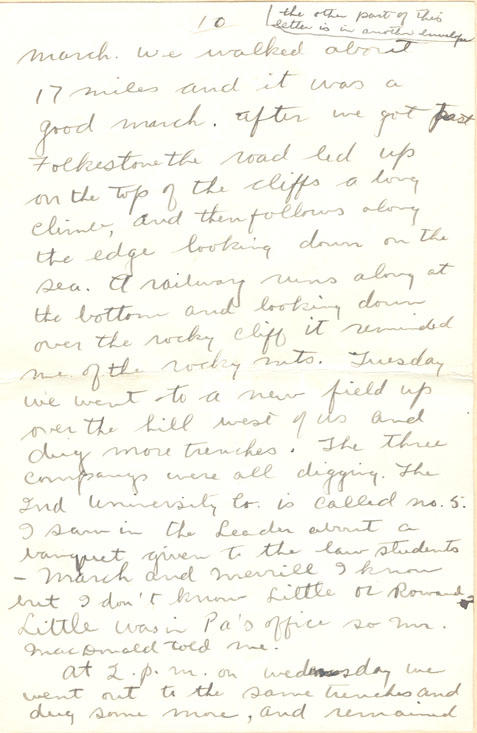 10
the other part of this
letter is in another envelope
march. We walked about
17 miles and it was a
good march. After we got past
Folkestone the road led up
on the top of the cliffs a long
climb, and then follows along
the edge looking down on the
sea. A railway runs along at
the bottom and looking down
over the rocky cliff it reminded
me of the rocky mts. Tuesday
we went to a new field up
over the hill west of us and
dug more trenches. The three
companys were all digging. The
2nd University Co. is called no. 5.
I saw in the Leader about a
banquet given to the law students
- March and Merrill I know
but I don't know Little or Rowand
Little was in Pa's office so Mr.
MacDonald told me.
At 2 p.m. on wednesday we
went out to the same trenches and
dug some more, and remained